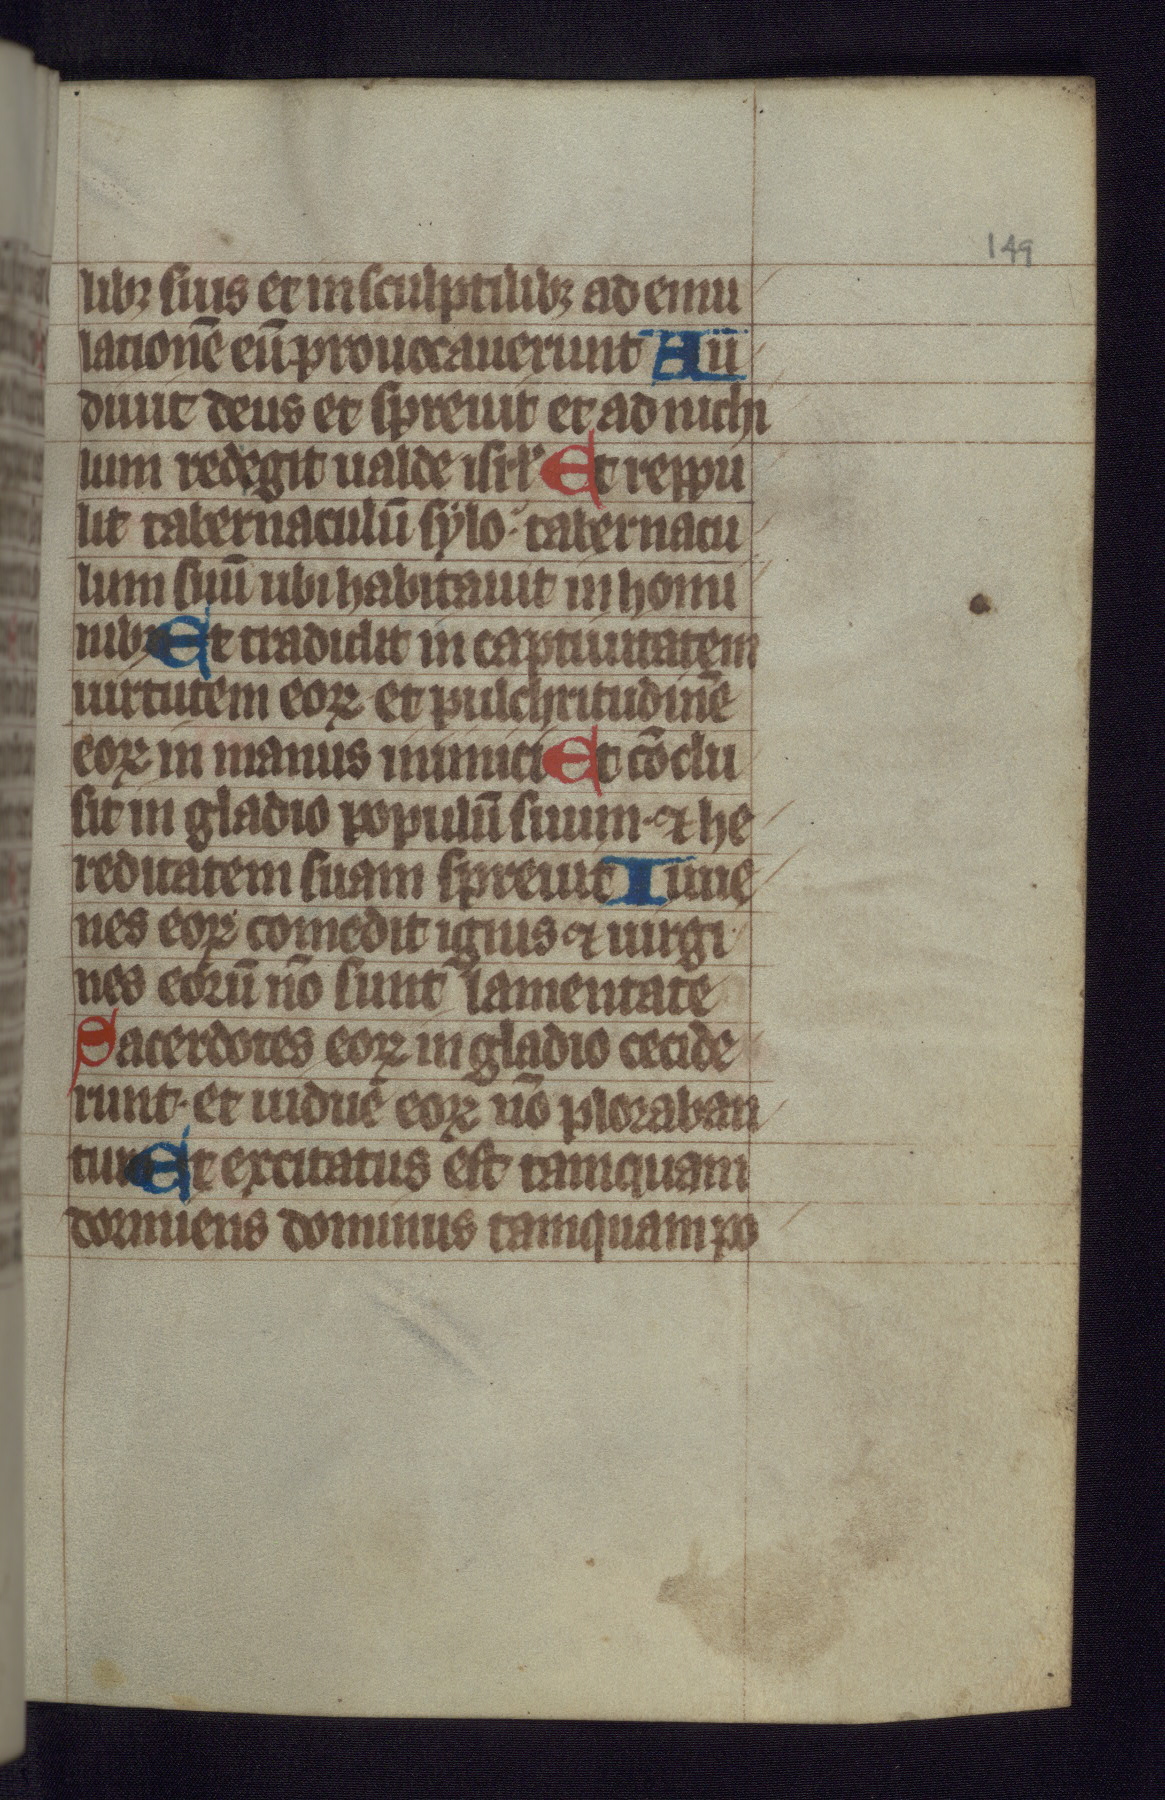 149
libꝫ suis et in sculptilibꝫ ad emu
lationē eū prouocauerunt Au
diuit deus et spreuit et ad nichi
lum redegit ualde isrl̄ Et reppu
lit tabernaculū sylo· tabernacu
lum suū ubi habitauit in homi
nibꝫ Et tradidit in captiuitatem
uirtutem eoꝝ et pulchritudinē
eoꝝ in manus inimici Et cōclu
sit in gladio populū suum· ⁊ he
reditatem suam spreuit Iuue
nes eoꝝ comedit ignis ⁊ uirgi
nes eorū nō sunt lamentate
Sacerdotes eoꝝ in gladio cecide
runt· et uidue eoꝝ nō ploraban
tur Et excitatus est tamquam
dormiens dominus tamquam po